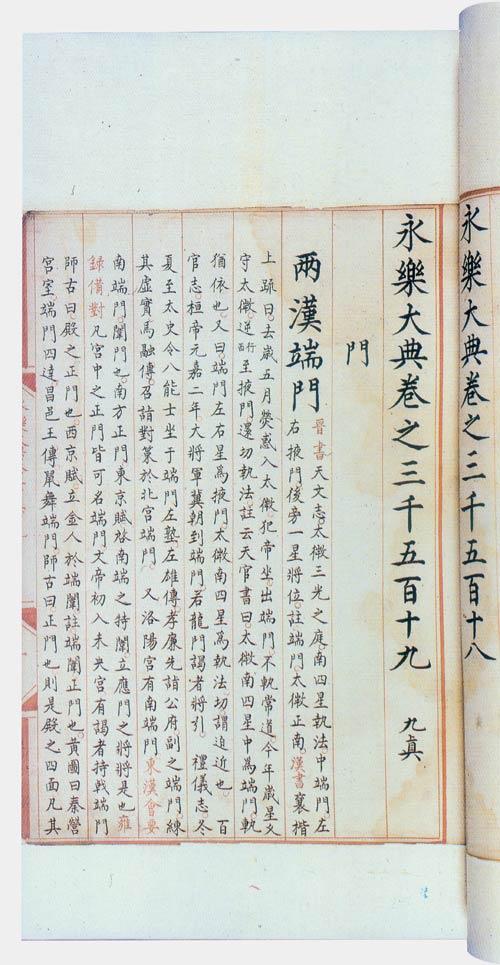 永樂大典卷之三千五百十八
永樂大典卷之三千五百十九 九真
門
兩漢端門
晉書天文志。太微三光之庭。南四星執法中端門。左
右掖門後旁一星將位。註端門太微正南。漢書襄楷
上疏曰。去歲五月熒惑入太微。犯帝坐。出端門。不軌常道。今年歲星久
守太微。逆行西至掖門。還切執法。註云天官書曰太微南四星中為端門。軌
猶依也。又曰端門左右星為掖門。太微南四星為執法。切謂迫近也。 百
官志。桓帝元嘉二年。大將軍冀朝到端門若龍門謁者將引。 禮儀志。冬
夏至太史令八能士坐于端門左塾。左雄傳孝廉先詣公府。副之端門。練
其虛實。馬融傳召詣對策於北宮端門。 又洛陽宮有南端門。東漢會要
南端門闈門也。南方正門。東京賦啟南端之特闈立應門之將將是也。雍
錄備對凡宮中之正門皆可名端門。文帝初入未央宮有謁者持戟端門
師古曰殿之正門也。西京賦立金人於端闈註端闈正門也。黃圖曰秦營
宮室端門四達。昌邑王傳嚴舞端門。師古曰正門也。則是殿之四面凡其